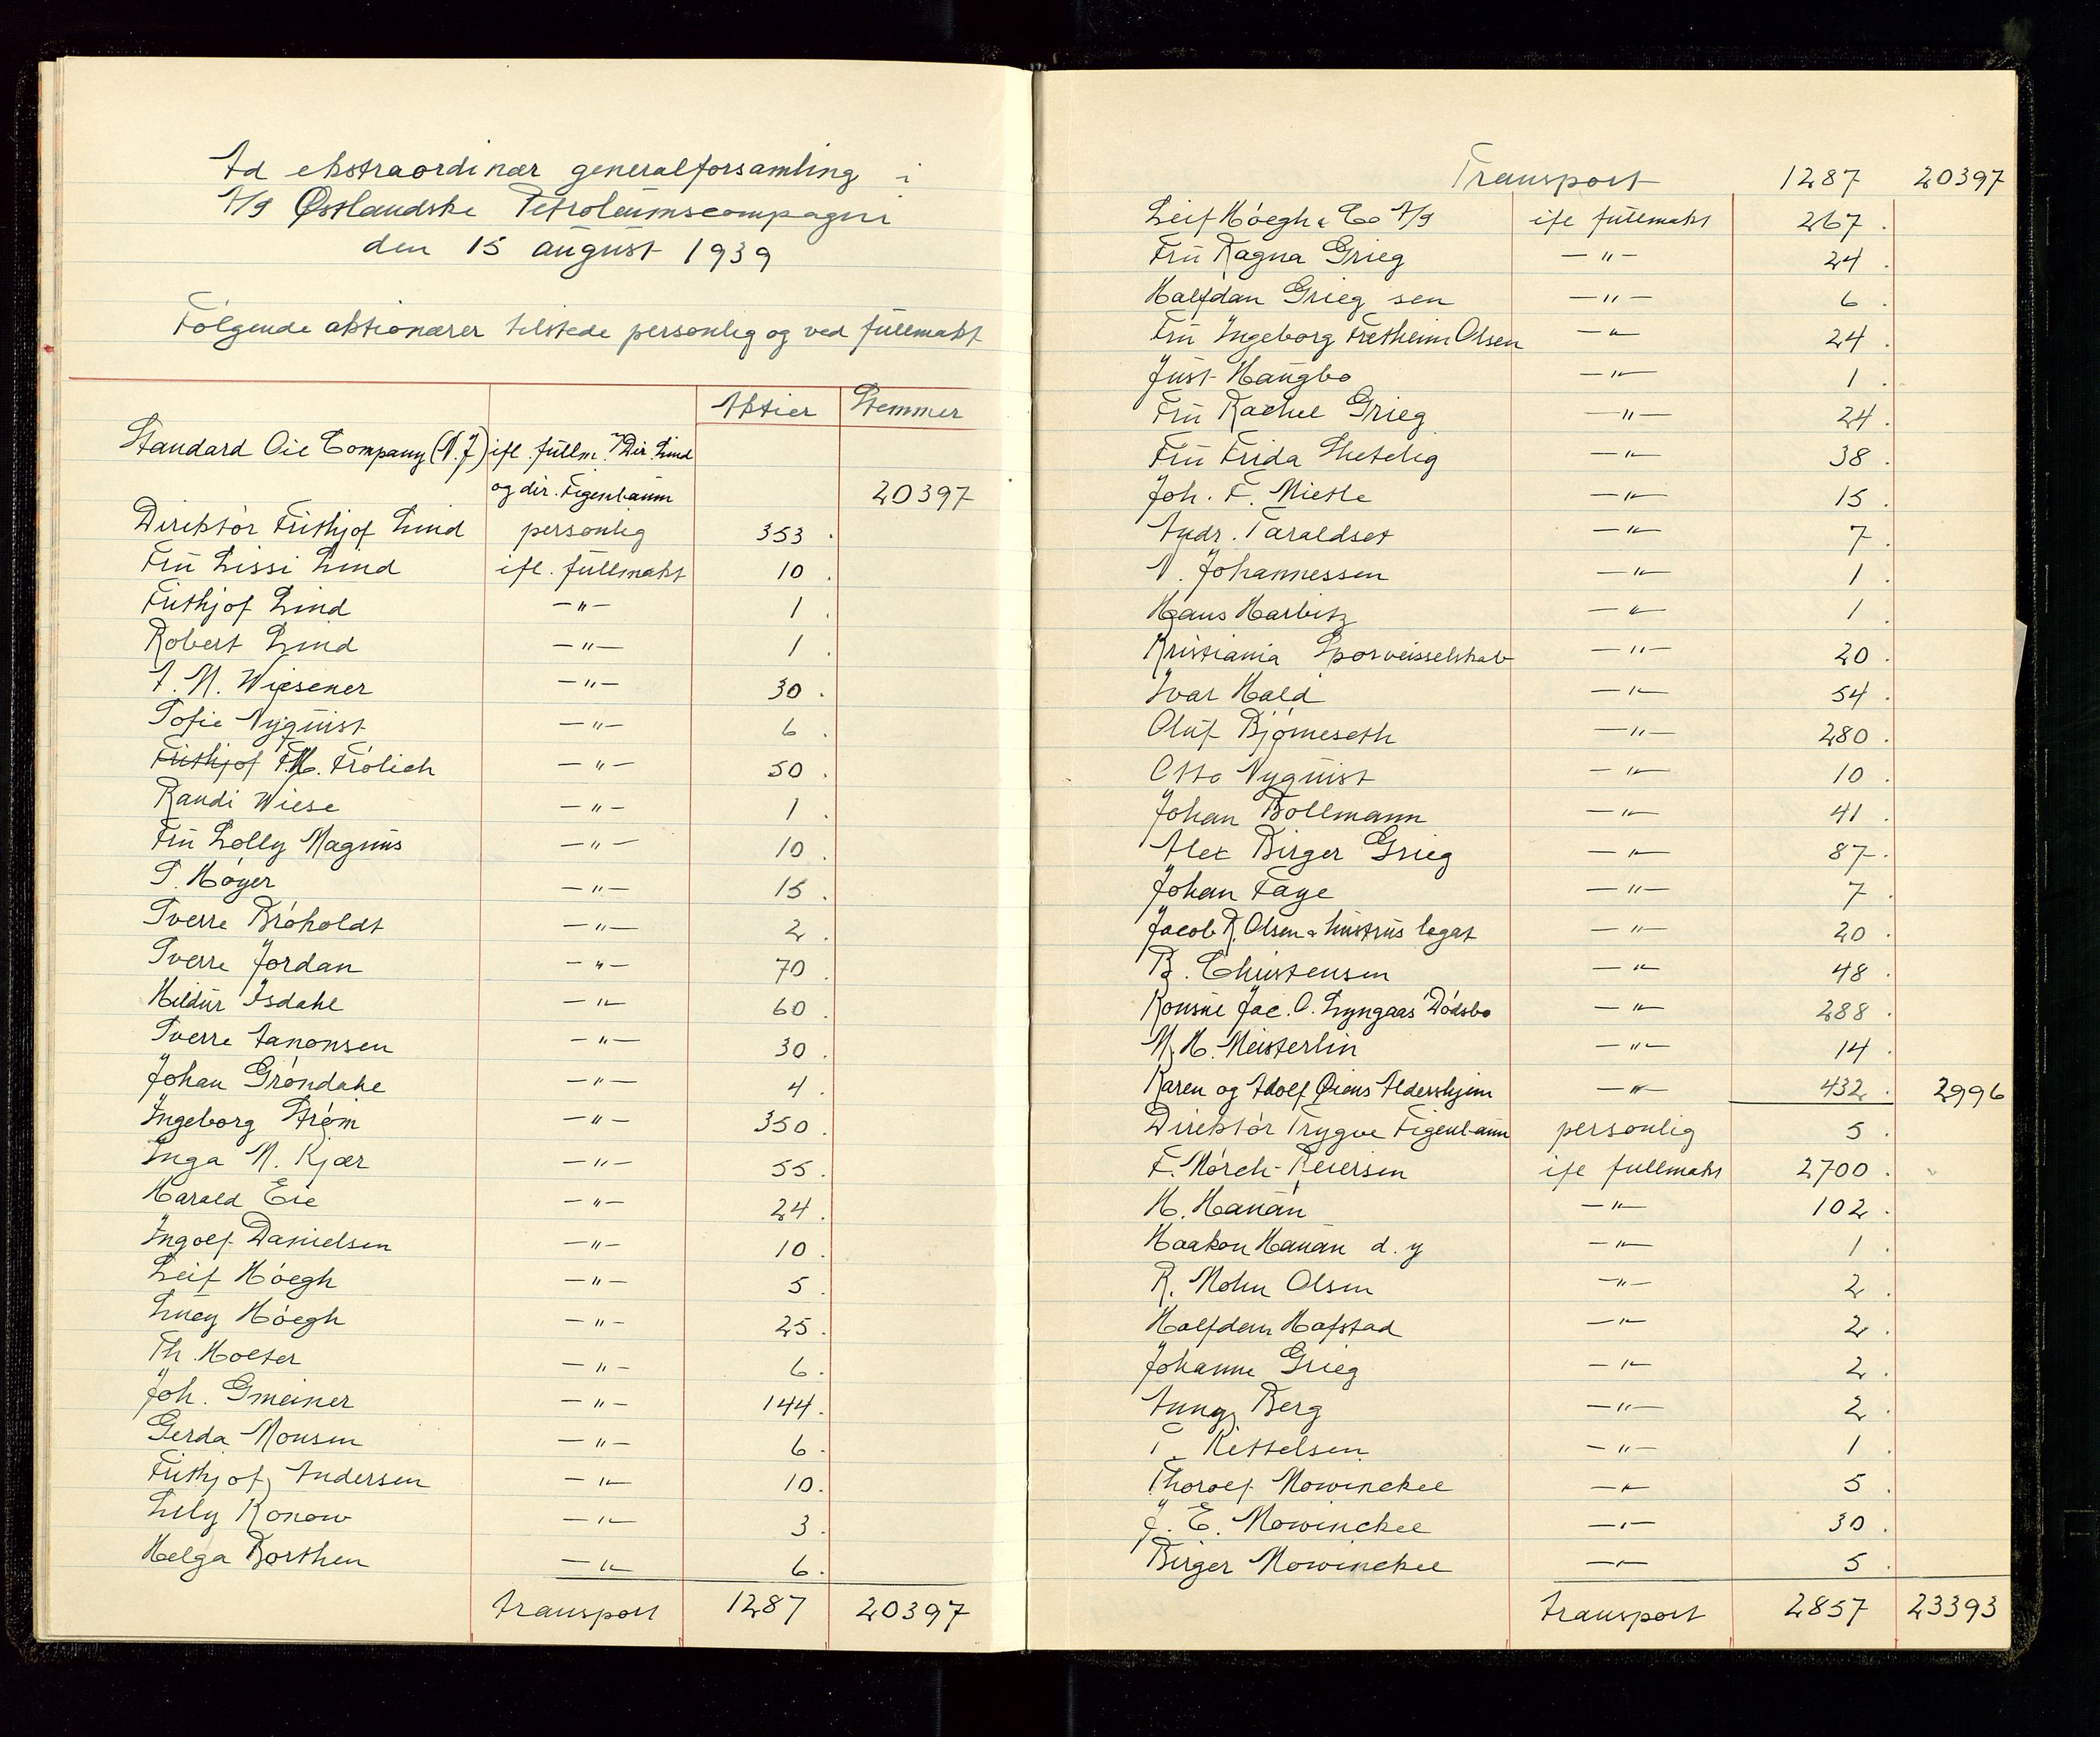 Ad ekstraordinær generalforsamling i
A/S Østlandske Petroleumscompagni
den 15 august 1939
Følgende aktionærer tilstede personlig og ved fullmakt
Aktier Stemmer
Standard Oil Company (N.J) ifl. fullm. Dir. Lind
og dir. Figenbaum 20397
Direktør Frithjof Lind personlig 353
Fru Lissi Lind ifl. fullmakt 10
Frithjof Lind —"— 1
Robert Lind —"— 1
A. N. Wiesener —"— 30
Sofie Nyquist —"— 6
Frithjof F.H. Frölich —"— 50
Randi Wiese —"— 1
Fru Lolly Magnus —"— 10
S. Høyer —"— 15
Sverre Brøholdt —"— 2
Sverre Jordan —"— 70
Hildur Isdahl —"— 60
Sverre Aanonsen —"— 30
Johan Grøndahl —"— 4
Ingeborg Strøm —"— 350
Inga N. Kjær —"— 55
Harald Eie —"— 24
Ingolf Danielsen —"— 10
Leif Høegh —"— 5
Lucy Høegh —"— 25
Th. Holter —"— 6
Joh. Gmeiner —"— 144
Gerda Monsen —"— 6
Frithjof Andersen —"— 10
Lilly Konow —"— 3
Helga Borthen —"— 6
transport 1287 20397
Transport 1287 20397
Leif Høegh & Co A/S ifl fullmakt 267
Fru Ragna Grieg —"— 24
Halfdan Grieg sen —"— 6
Fru Ingeborg Fretheim Olsen —"— 24
Just Haugbo —"— 1
Fru Rachel Grieg —"— 24
Fru Frida Shetelig —"— 38
Joh. F. Mietle —"— 15
Andr. Taraldset —"— 7
N. Johannessen —"— 1
Hans Harbitz —"— 1
Kristiania Sporveisselskab —"— 20
Ivar Hald —"— 54
Oluf Bjørneseth —"— 280
Otto Nyquist —"— 10
Johan Bollmann —"— 41
Alex Birger Grieg —"— 87
Johan Faye —"— 7
Jacob R. Olsen & hustrus legat —"— 20
B. Christensen —"— 48
Konsul Jac. O. Lyngaas' Dødsbo —"— 288
N. H. Meisterlin —"— 14
Karen og Adolf Øiens Aldershjem —"— 432 2996
Direktør Trygve Figenbaum personlig 5
F. Mørch-Reiersen ifl fullmakt 2700
H. Hauan —"— 102
Haakon Hauan d. y —"— 1
R. Mohn Olsen —"— 2
Halfdan Hafstad —"— 2
Johanne Grieg —"— 2
Anng Berg —"— 2
T. Kittelsen —"— 1
Thorolf Mowinckel —"— 5
J. E. Mowinckel —"— 30
Birger Mowinckel —"— 5
transport 2857 23393